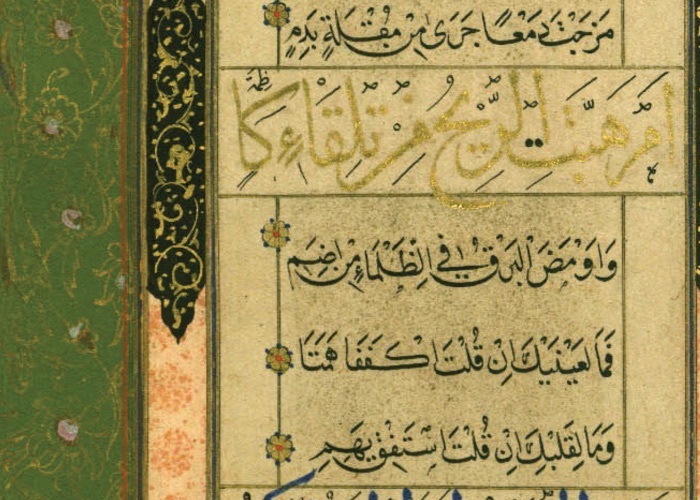 مَزَجْتَ دَمْعًا جَرٰى مِنْ مُقْلَةٍ بِدَمٍ
اَمْ هَبَّتِ الرِّيحُ مِنْ تِلْقَاءِ كَاظِمَةٍ
وَاَوْمَضَ الْبَرْقُ فِي الظَّلْمَاءِ مِنْ اِضَمِ
فَمَا لِعَيْنَيْكَ اِنْ قُلْتَ اكْفُفَا هَمَتَا
وَمَا لِقَلْبِكَ اِنْ قُلْتَ اسْتَفِقْ يَهِمِ